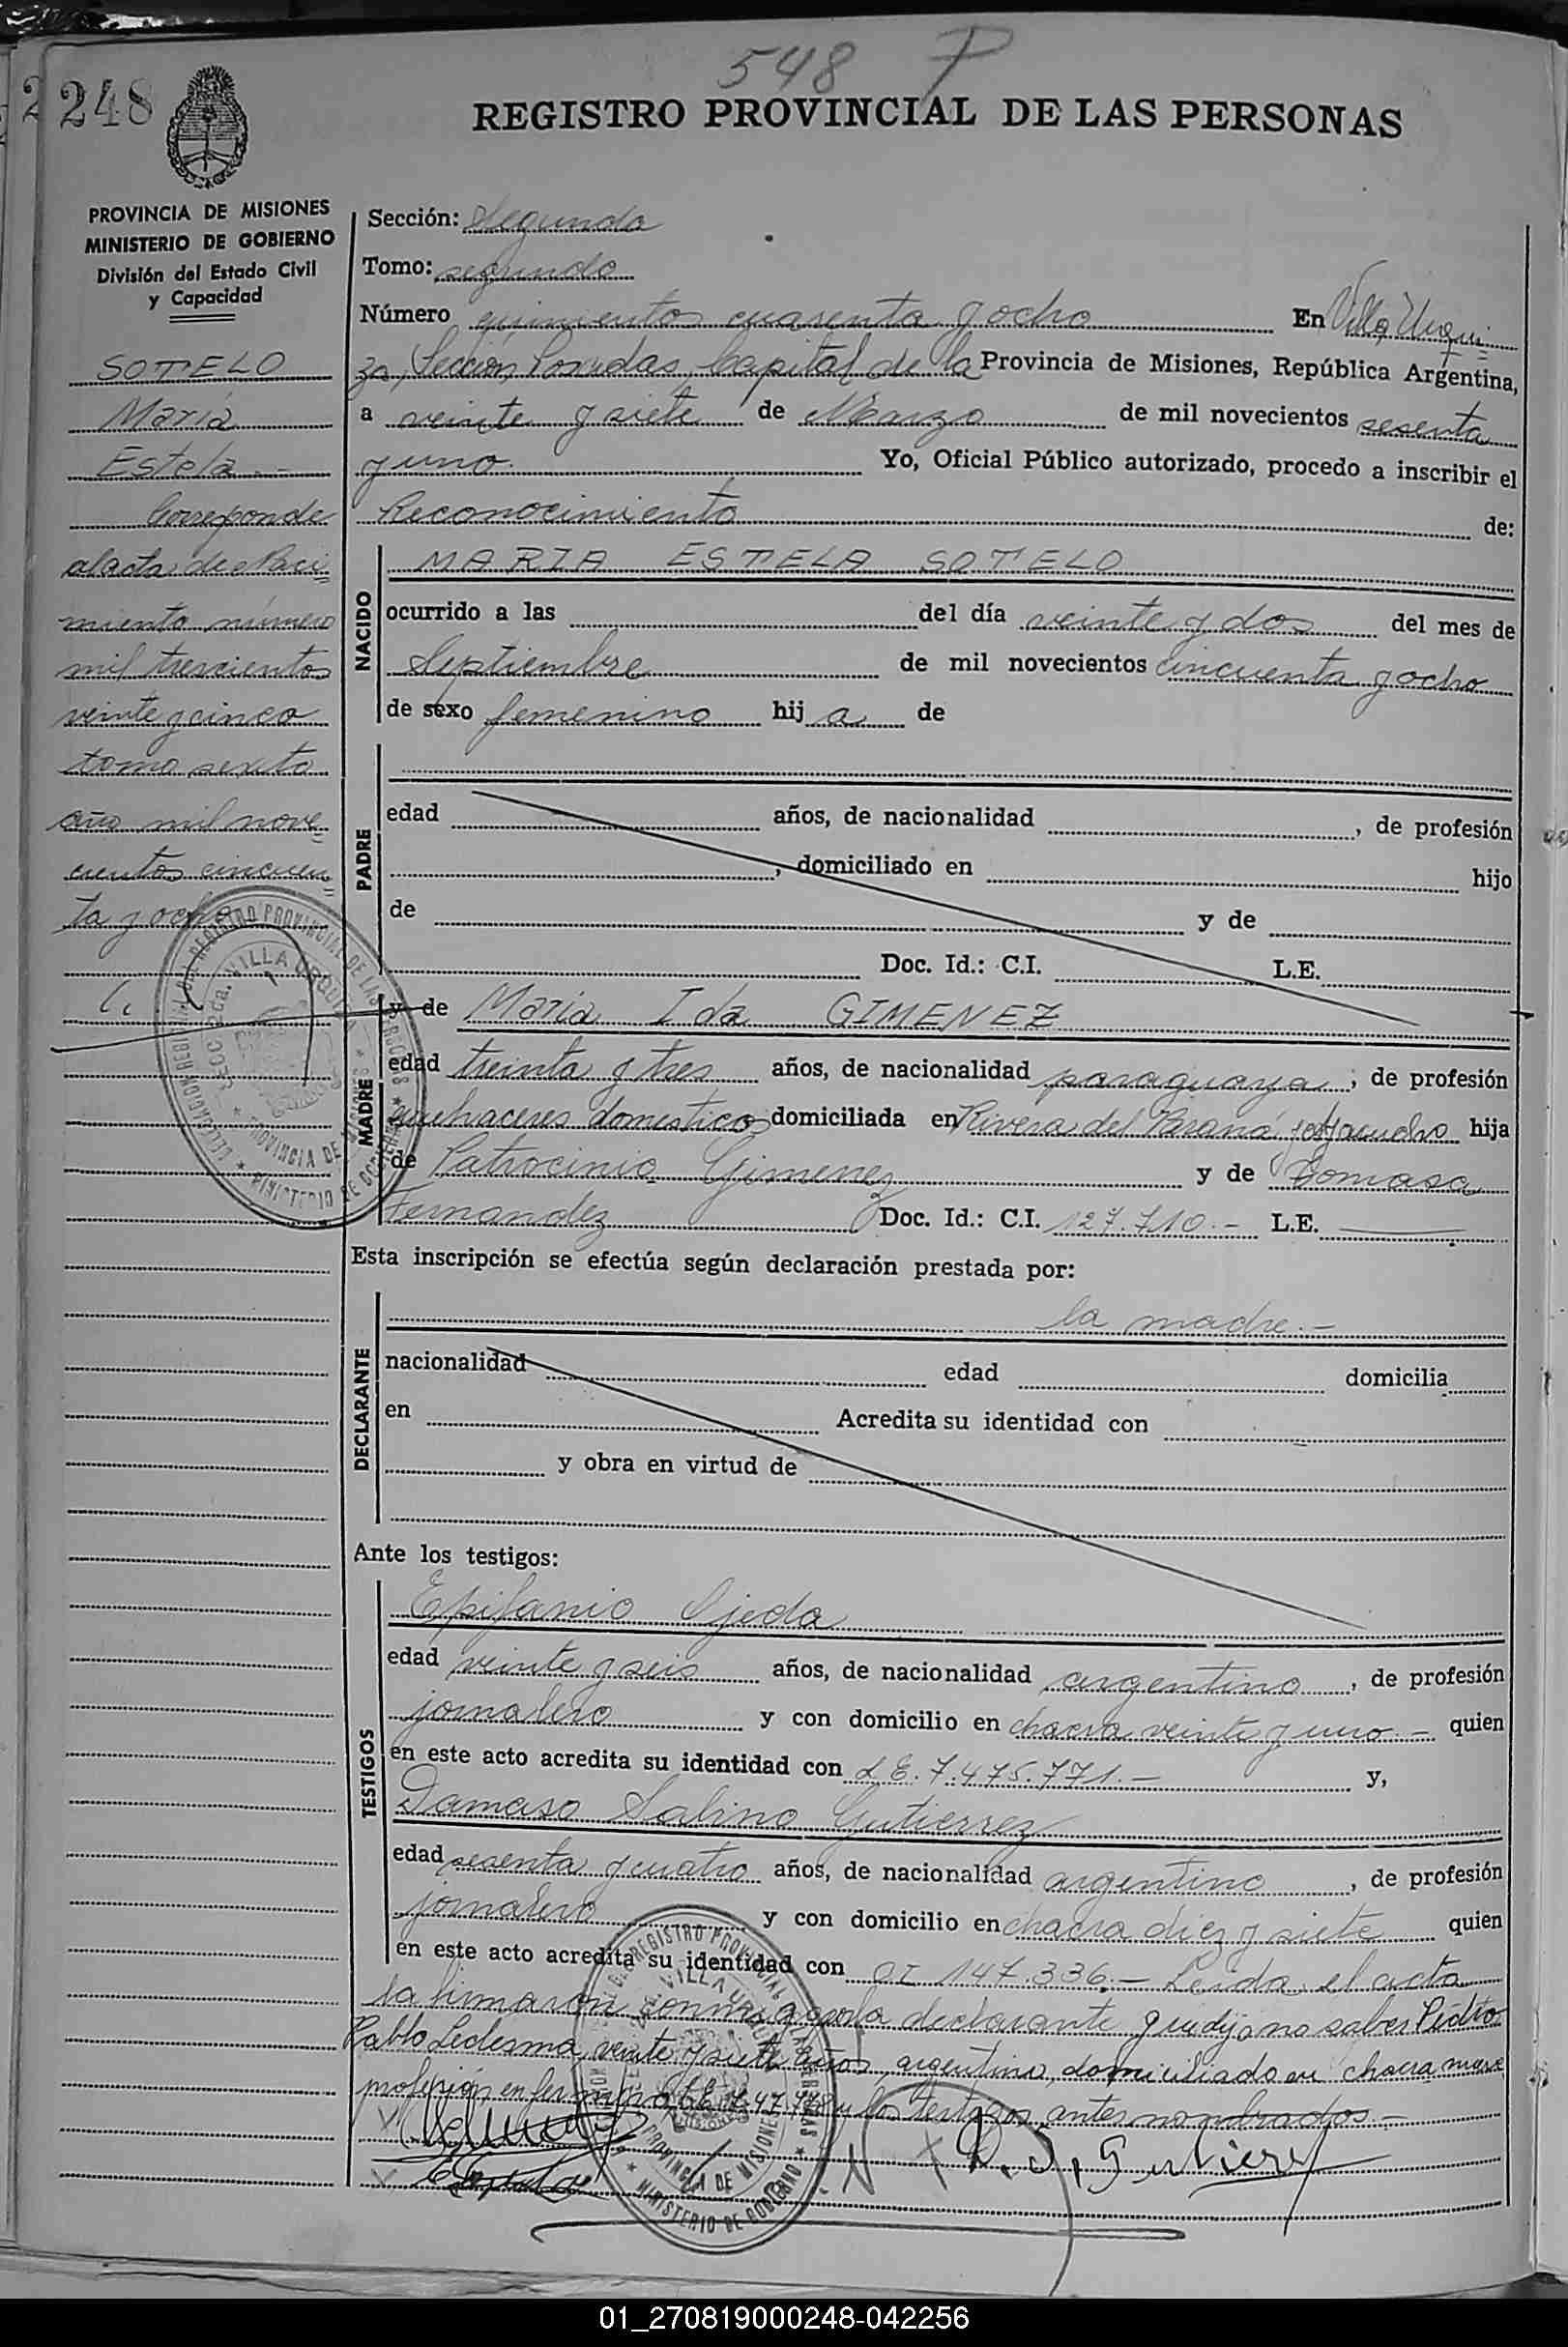 548 P
248
REGISTRO PROVINCIAL DE LAS PERSONAS
PROVINCIA DE MISIONES
MINISTERIO DE GOBIERNO
División del Estado Civil
y Capacidad
SOTELO
Maria
Estela.-
Corresponde
al acta de Naci
miento número
mil trescientos
veinte y cinco
tomo sexto
año mil nove
cientos cincuen
ta y ocho
Sección: Segunda
Tomo: segundo
Número quinientos cuarenta y ocho En Villa Urqui
za, Sección Posadas, Capital de la Provincia de Misiones, República Argentina,
a veinte y siete de Marzo de mil novecientos sesenta
y uno. Yo, Oficial Público autorizado, procedo a inscribir el
Reconocimiento de:
NACIDO
MARIA ESTELA SOTELO
ocurrido a las del día veinte y dos del mes de
Septiembre de mil novecientos cincuenta y ocho
de sexo femenino hij a de
PADRE
edad años, de nacionalidad , de profesión
, domiciliado en hijo
de y de
Doc. Id.: C.I. L.E.
MADRE
y de Maria Ida GIMENEZ
edad treinta y tres años, de nacionalidad paraguaya, de profesión
quehaceres domesticos domiciliada en Rivera del Paraná y Ayacucho hija
de Patrocinio Gimenez y de Tomasa
Fernandez Doc. Id.: C.I. 127.710.- L.E.
Esta inscripción se efectúa según declaración prestada por:
DECLARANTE
la madre.-
nacionalidad edad domicilia
en Acredita su identidad con
y obra en virtud de
Ante los testigos:
TESTIGOS
Epifanio Ojeda
edad veinte y seis años, de nacionalidad argentino, de profesión
jornalero y con domicilio en chacra veinte y uno.- quien
en este acto acredita su identidad con L E. 7.475.771.- y,
Damaso Sabino Gutierrez
edad sesenta y cuatro años, de nacionalidad argentino, de profesión
jornalero y con domicilio en chacra diez y siete quien
en este acto acredita su identidad con CI 147.336.- Leída el acta
la firmaron conmigo por la declarante que dijo no saber Pedro
Pablo Ledesma, veinte y siete años, argentino, domiciliado en chacra nueve
profesión enfermero y los testigos antes nombrados.-
D. S. Gutierrez
01_270819000248-042256